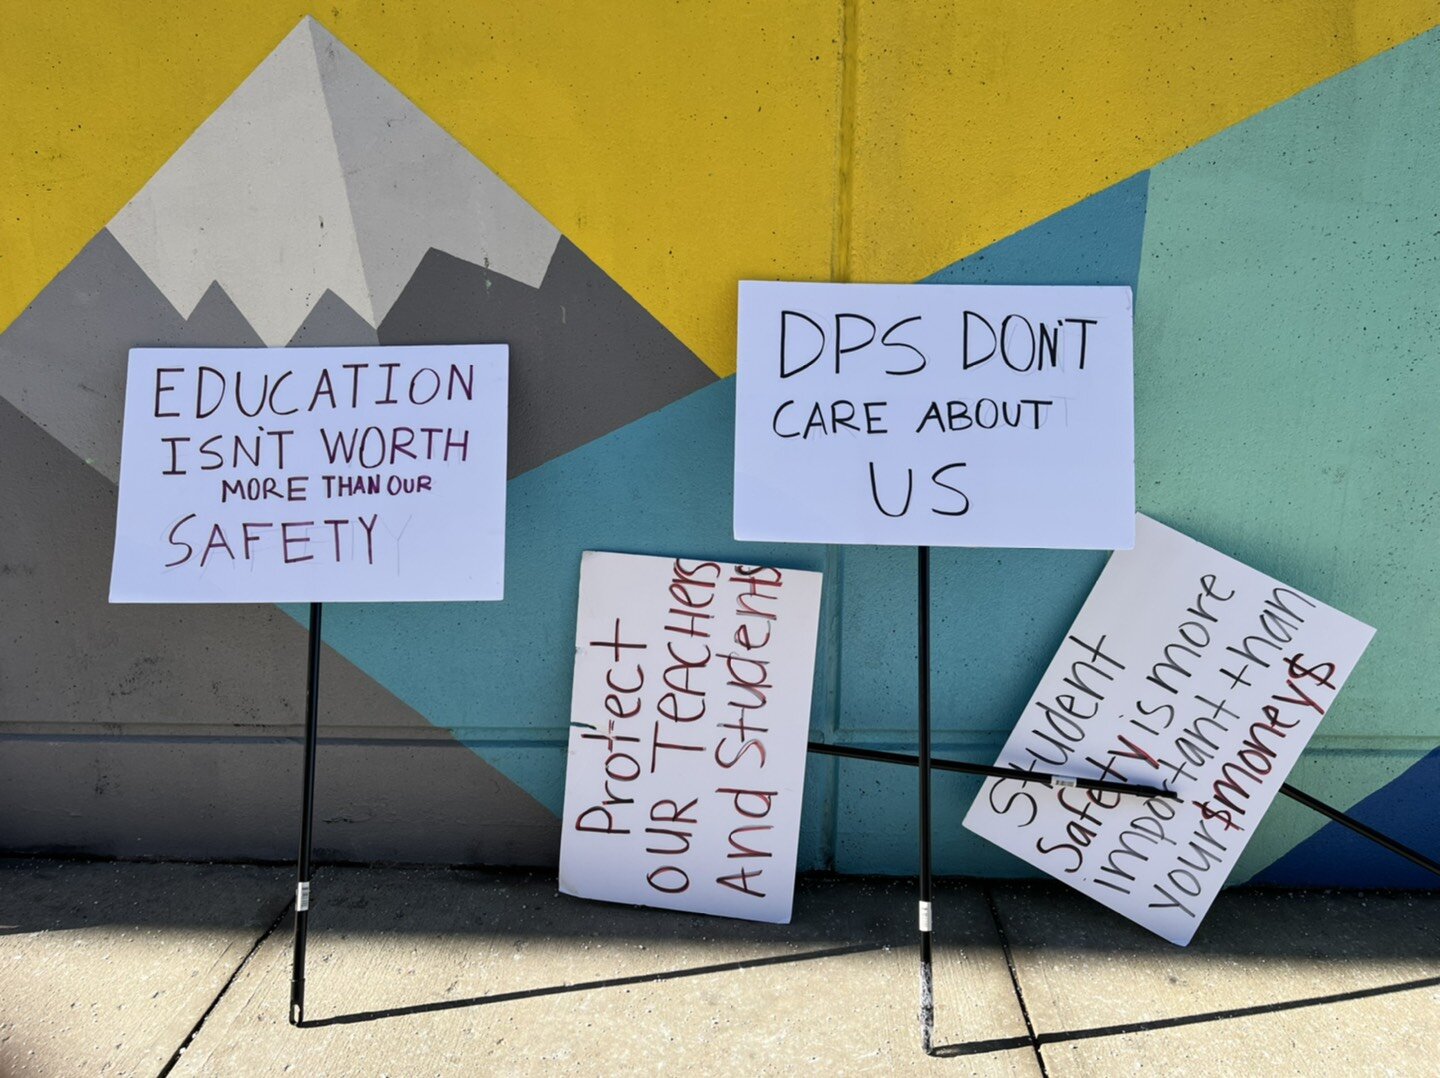 EDUCATION
ISN'T WORTH
MORE THAN OUR
SAFETY
DPS DON'T
CARE ABOUT
US
Protect
OUR TEACHERS
And Students
Student
Safety is more
important than
your $money$